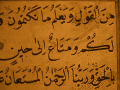 من القول ويعلم ما تكتمون
لكم ومتاع إلى حين
بالحق وربنا الرحمن المستعان